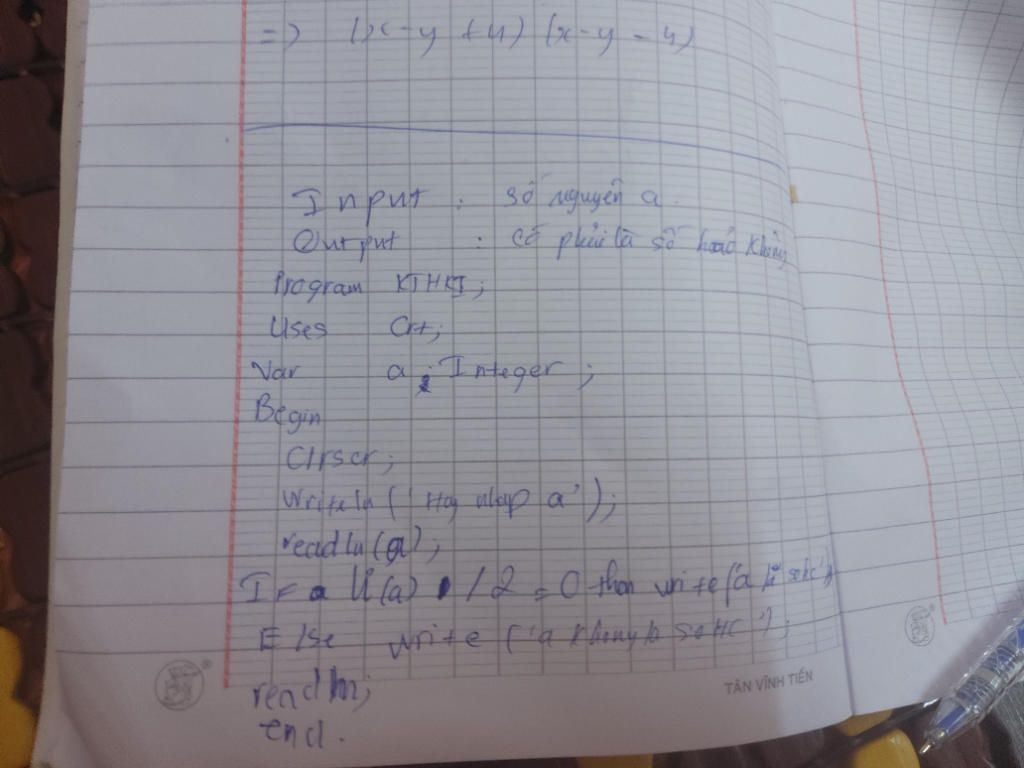 => (x-y+4) (x-y-4)
Input : số nguyên a.
Output : có phải là số hoàn không
Program KTHKI;
Uses Crt;
Var a : Integer ;
Begin
Clrscr;
Writeln ('Hay nhap a');
readln (a);
If Ư(a) / 2 = 0 then write ('a là
Else write ('a khong la so HC');
readln;
end.
TÂN VĨNH TIẾN